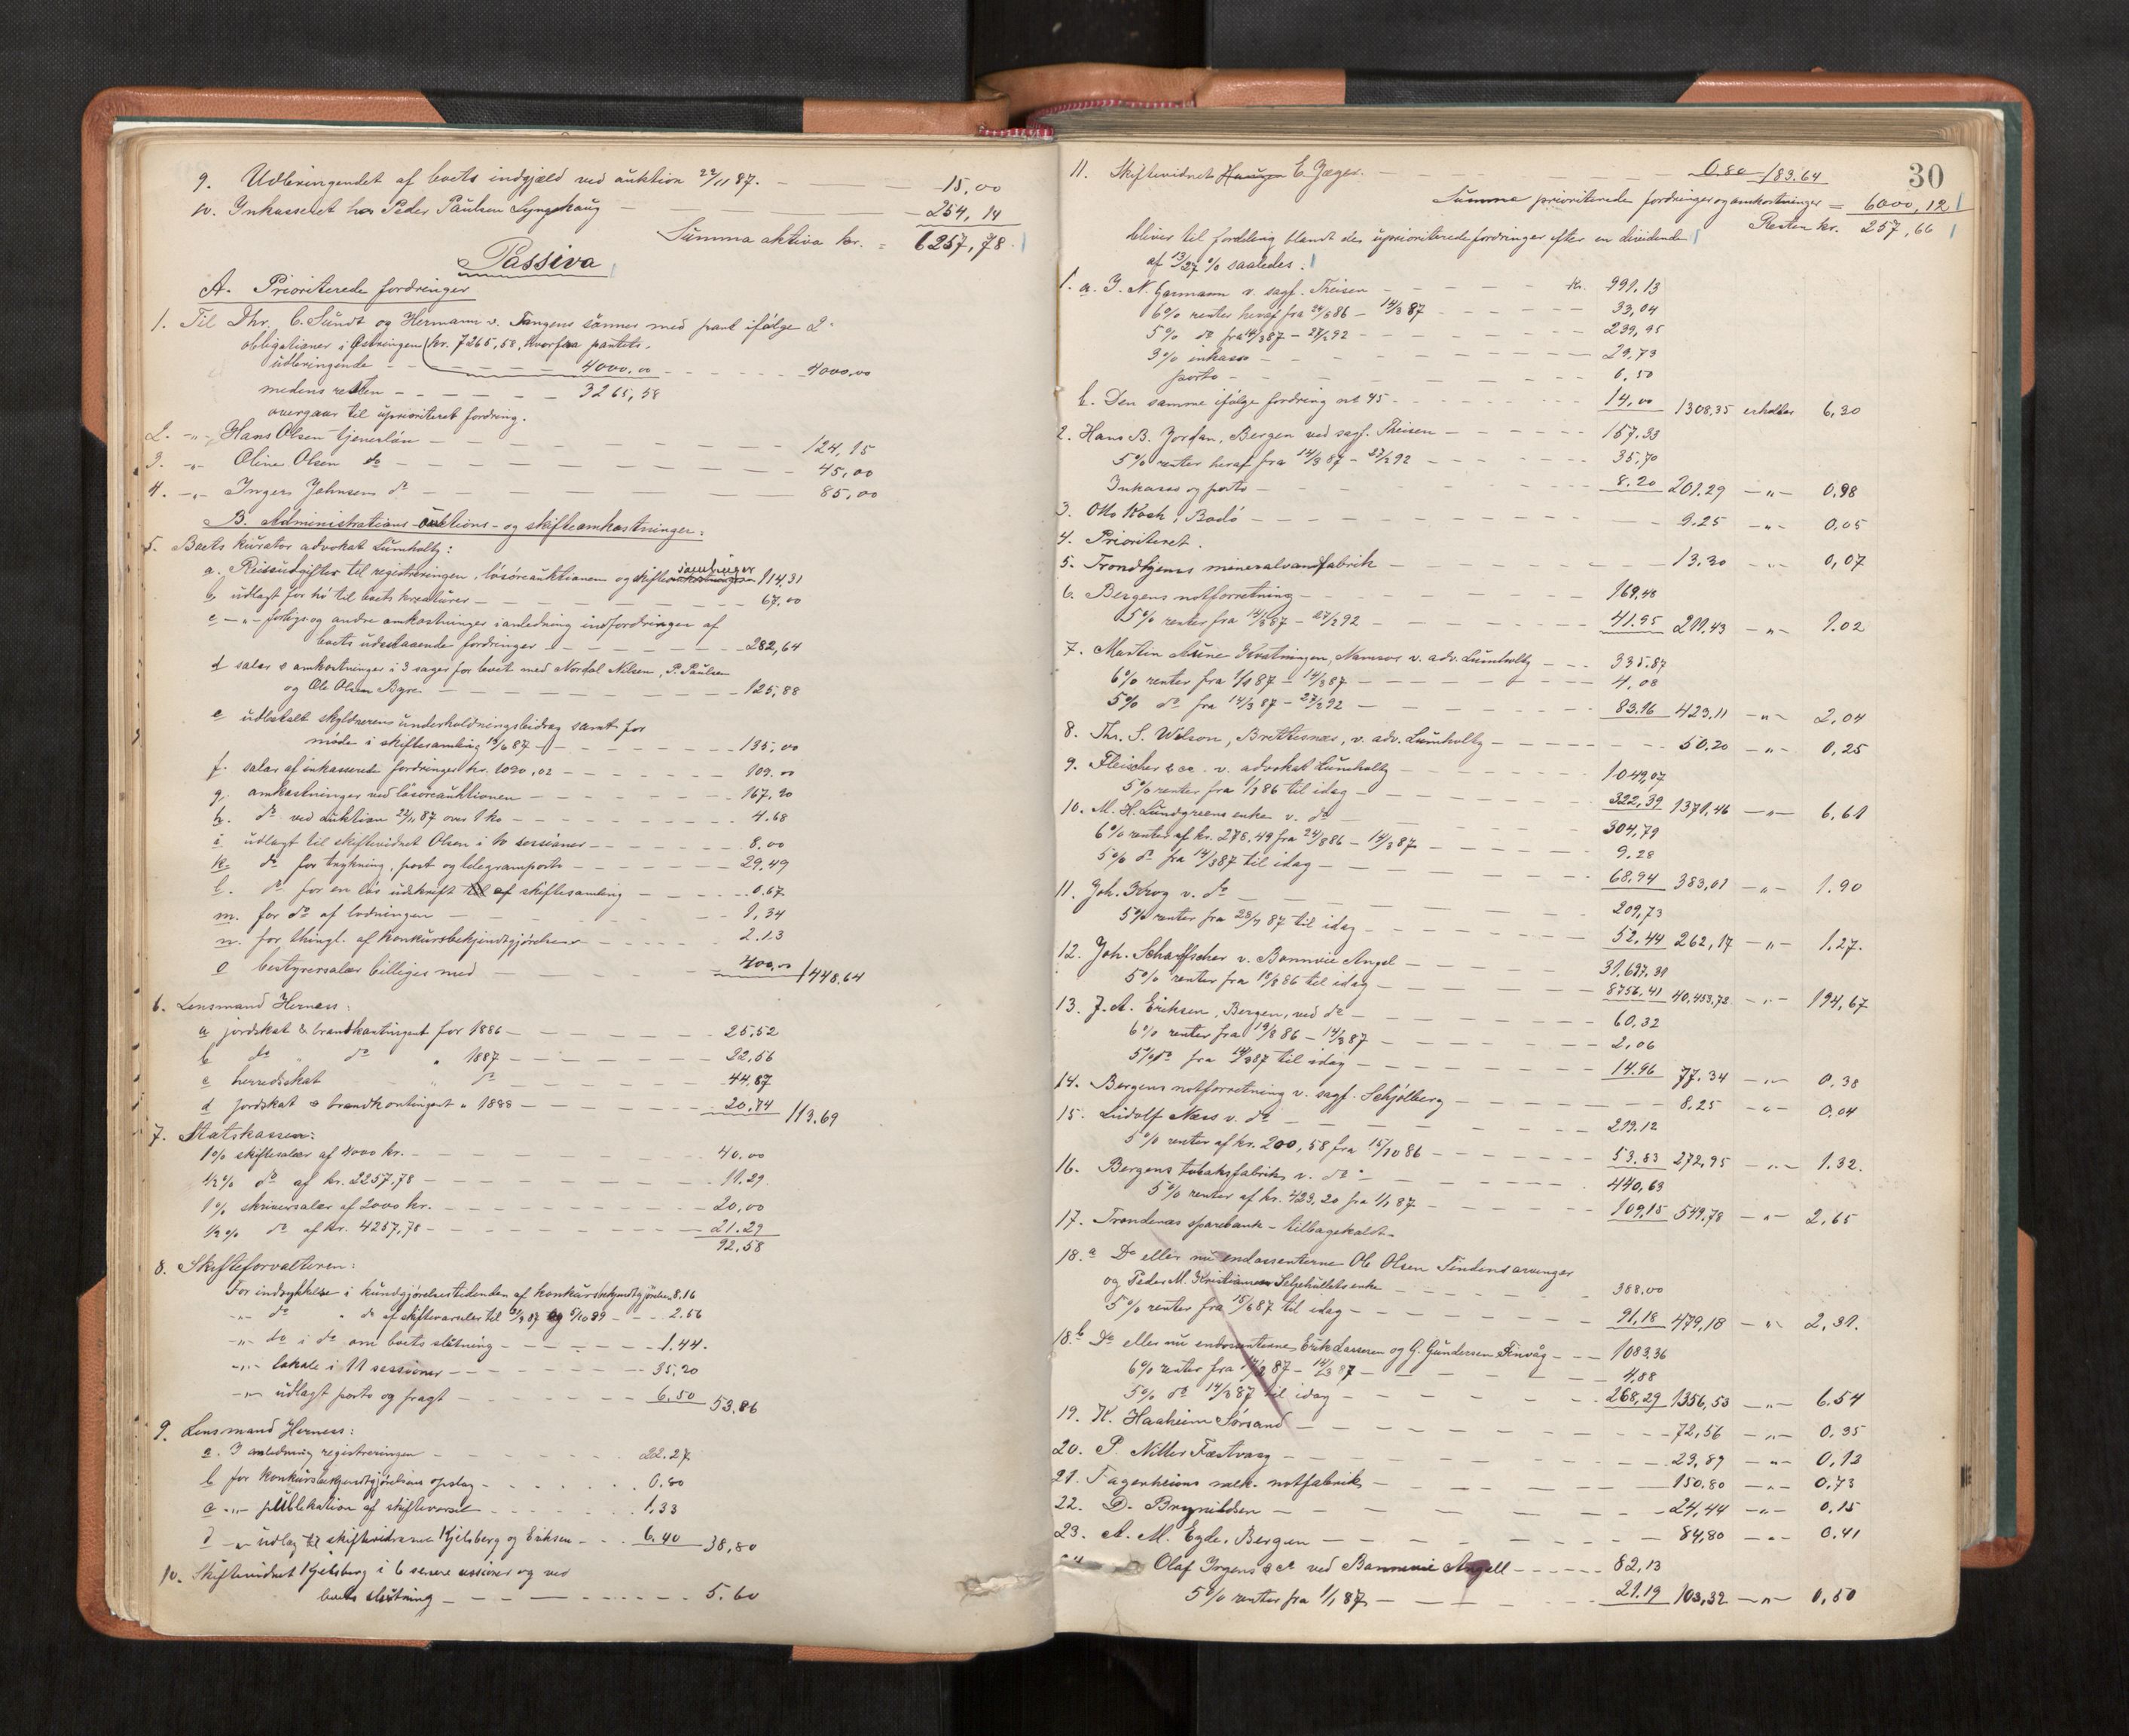 9. Udbringendet af boets indgjæld ved auktion 22/11 87. — 15,00
10. Inkasseret hos Peder Paulsen Lyngehaug — 254,14
Summa aktiva kr. = 6257,78.
Passiva
A. Prioriterede fordringer
1. Til Thr. C. Sundt og Hermann v. Tangens sönner med pant ifölge 2
obligationer i kr. 7265,58, hvorfra pantets
udbringende — 4000.00 — 4000,00
medens resten — 3265,58
overgaar til uprioriteret fordring.
2. —„— Hans Olsen tjenerlön — 124,15
3. —„— Oline Olsen do — 45,00
4. —„— Inger Johnsen do — 85,00
B. Administrations- auktions- og skifteomkostninger:
5. Boets kurator advokat Lumholtz:
a. Reiseudgifter til registreringen, lösöreauktionen og skiftesamlinger 114,31
b. udlagt for hö til boets kreaturer — 67,00
c —„— forligs- og andre omkostninger i anledning indfordringen af
boets udestaaende fordringer — 282,64
d salær & omkostninger i 3 sager for boet med Nordal Nilsen, P. Paulsen
og Ole Olsen Byre — 125,88
e udbetalt skyldnerens underholdningsbidrag samt for
möde i skiftesamling 15/6 87 — 135,00
f. salær af inkasserede fordringer kr. 1090,02 — 109.00
g. omkostninger ved lösöreauktionen — 167,20
h. do ved auktion 22/11 87 over 1 ko — 4.68
i udlagt til skiftevidnet Olsen i 10 sessioner — 8,00
k. do for trykning, post og telegramporto — 29,49
l. do for en lös udskrift af skiftesamling — 0.67
m. for do af lodningen — 1,34
n. for thingl. af konkursbekjendtgjörelsen — 2.13
o bestyrersalær billiges med — 400,00 1448,64
6. Lensmand Herness:
a jordskat & brandkontingent for 1886 — 25,52
b do „ do „ 1887 — 22,56
c herredskat „ do — 44,87
d jordskat & brandkontingent „ 1888 — 20,74 113.69
7. Statskassen:
1% skiftesalær af 4000 kr. — 40.00
1/2% do af kr. 2257,78 — 11.29
1% skriversalær af 2000 kr. — 20,00
1/2% do af kr. 4257,78 — 21.29
92,58
8. Skifteforvalteren:
For indrykkelse i kundgjörelsestidenden af konkursbekjendtgjörelsen 8.16
—„— do „ do af skiftevarsler til 21/9 87 og 5/10 89 — 2.56
—„— do i do om boets slutning — 1.44.
—„— lokale i 11 sessioner — 35,20
—„— udlagt porto og fragt — 6.50 53,86
9. Lensmand Herness:
a. I anledning registreringen — 22.27
b for konkursbekjendtgjörelsens opslag — 0.80
c —„— publikation af skiftevarsel — 1.33
d —„— udlæg til skiftevidnerne Kjelsberg og Eriksen — 6.40 38,80
10. Skiftevidnet Kjelsberg i 6 senere sessioner og ved
boets slutning — 5.60
30
11. Skiftevidnet E. Jæger. — 0.80 183.64
Summa prioriterede fordringer og omkostninger = 6000,12
Resten kr. 257,66
bliver til fordeling blandt de uprioriterede fordringer efter en dividende
af 13/27 % saaledes:
1. a. J. N. Garmann v. sagf. Theisen — kr. 991.13
6% renter heraf fra 24/8 86 – 14/3 87 — 33,04
5% do fra 14/3 87 – 27/2 92 — 239,95
3% inkasso — 29,73
porto — 0,50
b. Den samme ifölge fordring nr 45 — 14,00 1308,35 erholder 6,30
2. Hans B. Jordan, Bergen ved sagf. Theisen — 157.33
5% renter heraf fra 14/3 87 – 27/2 92 — 35,70
Inkasso og porto — 8.20 201.29 —„— 0,98
3. Otto Koch, Bodö — 9.25 —„— 0,05
4. Prioriteret.
5. Trondhjems mineralvandfabrik — 13,30 —„— 0,07
6. Bergens notforretning — 169,48
5% renter fra 14/3 87 – 27/2 92 — 41.95 211,43 —„— 1.02
7. Martin Aune Kvatningen, Namsos v. adv. Lumholtz — 335.87
6% renter fra 1/1 87 – 14/3 87 — 4,08
5% do fra 14/3 87 – 27/2 92 — 83.16 423,11 —„— 2,04
8. Thr. S. Wilson, Brettesnæs, v. adv. Lumholtz — 50.20 —„— 0,25
9. Fleischer & co. v. advokat Lumholtz — 1049,07
5% renter fra 1/1 86 til idag — 322,39 1371,46 —„— 6,61
10. M. H. Lundgreens enke v. do — 304,79
6% renter af kr. 278.49 fra 24/8 86 – 14/3 87 — 9.28
5% do fra 14/3 87 til idag — 68.94 383,01 —„— 1.90
11. Joh. Krog v. do — 209,73
5% renter fra 28/2 87 til idag — 52.44 262,17 —„— 1.27.
12. Joh. Scharffscher v. Bonnevie Angel — 31,697.31
5% renter fra 18/8 86 til idag — 8756,41 40,453,72 —„— 194,67
13. J. A. Eriksen, Bergen, ved do — 60,32
6% renter fra 19/8 86 – 14/3 87 — 2,06
5% do fra 14/3 87 til idag — 14.96 77.34 —„— 0,38
14. Bergens notforretning v. sagf. Schjölberg — 8,25 —„— 0.04
15. Ludolf Næss v. do — 219.12
5% renter af kr. 200,58 fra 15/10 86 — 53.83 272,95 —„— 1.32.
16. Bergens tobaksfabrik v. do — 440,63
5% renter af kr. 423,20 fra 1/1 87 — 109,15 549,78 —„— 2,65
17. Trondenæs sparebank – tilbagekaldt.
18.a Do eller nu endossenterne Ole Olsen Tendens arvinger
og Peder M. Kristiansen Seljehullets enke — 388.00
5% renter fra 15/6 87 til idag — 91,18 479,18 —„— 2,31.
18.b Do eller nu endossenterne Erik Lassesen og G. Gundersen Finvåg — 1083.36
6% renter fra 17/2 87 – 14/3 87 — 4,88
5% do 14/3 87 til idag — 268,29 1356,53 —„— 6.54
19. K. Haaheim Sörsand — 72,56 —„— 0,35
20. P. Nitter Fæstvaag — 23,89 —„— 0,12
21. Fagerheims mek. notfabrik — 150.80 —„— 0,73
22. D. Brynildsen — 24,44 —„— 0,15
23. A. M. Egde, Bergen — 84,80 —„— 0.41
Olaf Irgens & co ved Bonnevie Angell — 82,13
5% renter fra 1/1 87 — 21.19 103,32 —„— 0,50